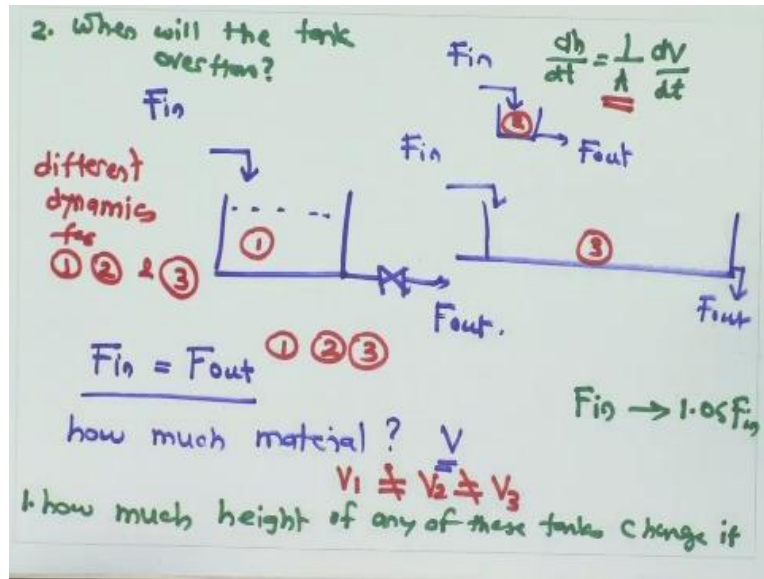 2. When will the tank
overflow?
Fin
dh/dt = 1/A dV/dt
Fin
② Fout
Fin
different
dynamics
for
① ② & ③
①
③
Fout.
Fout
Fin = Fout ① ② ③
Fin → 1.05Fin
how much material? V
V1 ≠ V2 ≠ V3
1. how much height of any of these tanks change if